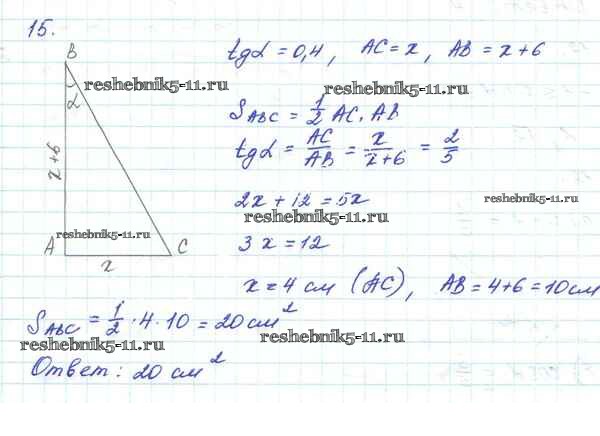 15.
B
tgα = 0,4, AC = x, AB = x+6
reshebnik5-11.ru
reshebnik5-11.ru
α
S ABC = 1/2 AC · AB
tgα = AC/AB = x/x+6 = 2/5
x+6
2x + 12 = 5x
reshebnik5-11.ru
reshebnik5-11.ru
reshebnik5-11.ru
A
C
3x = 12
x
x = 4 см (AC), AB = 4+6 = 10 см
S ABC = 1/2 · 4 · 10 = 20 см²
reshebnik5-11.ru
reshebnik5-11.ru
Ответ: 20 см²